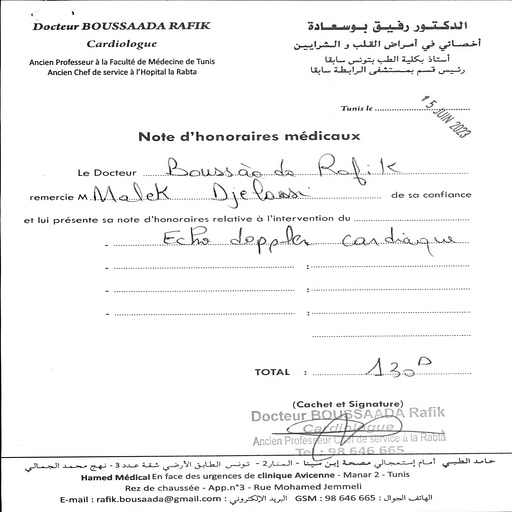 Docteur BOUSSAADA RAFIK
Cardiologue
Ancien Professeur à la Faculté de Médecine de Tunis
Ancien Chef de service à l'Hopital la Rabta
الدكتـور رفيـق بـوسعـادة
أخصائي في أمراض القلب و الشرايين
أستاذ بكلية الطب بتونس سابقا
رئيس قسم بمستشفى الرابطة سابقا
Tunis le 15 JUIN 2023
Note d'honoraires médicaux
Le Docteur Boussaada Rafik
remercie M Malek Djelassi de sa confiance
et lui présente sa note d'honoraires relative à l'intervention du
- Echo doppler cardiaque
- :
- :
- :
TOTAL : 130D
(Cachet et Signature)
Docteur BOUSSAADA Rafik
Cardiologue
Ancien Professeur Chef de service à la Rabta
Tel : 98 646 665
حامد الطبي أمام إستعجالي مصحة إبن سينا - المنار 2 - تونس الطابق الأرضي شقة عدد 3 - نهج محمد الجمالي
Hamed Médical En face des urgences de clinique Avicenne - Manar 2 - Tunis
Rez de chaussée - App.n°3 - Rue Mohamed Jemmeli
E-mail : rafik.bousaada@gmail.com : البريد الإلكتروني GSM : 98 646 665 : الهاتف الجوال